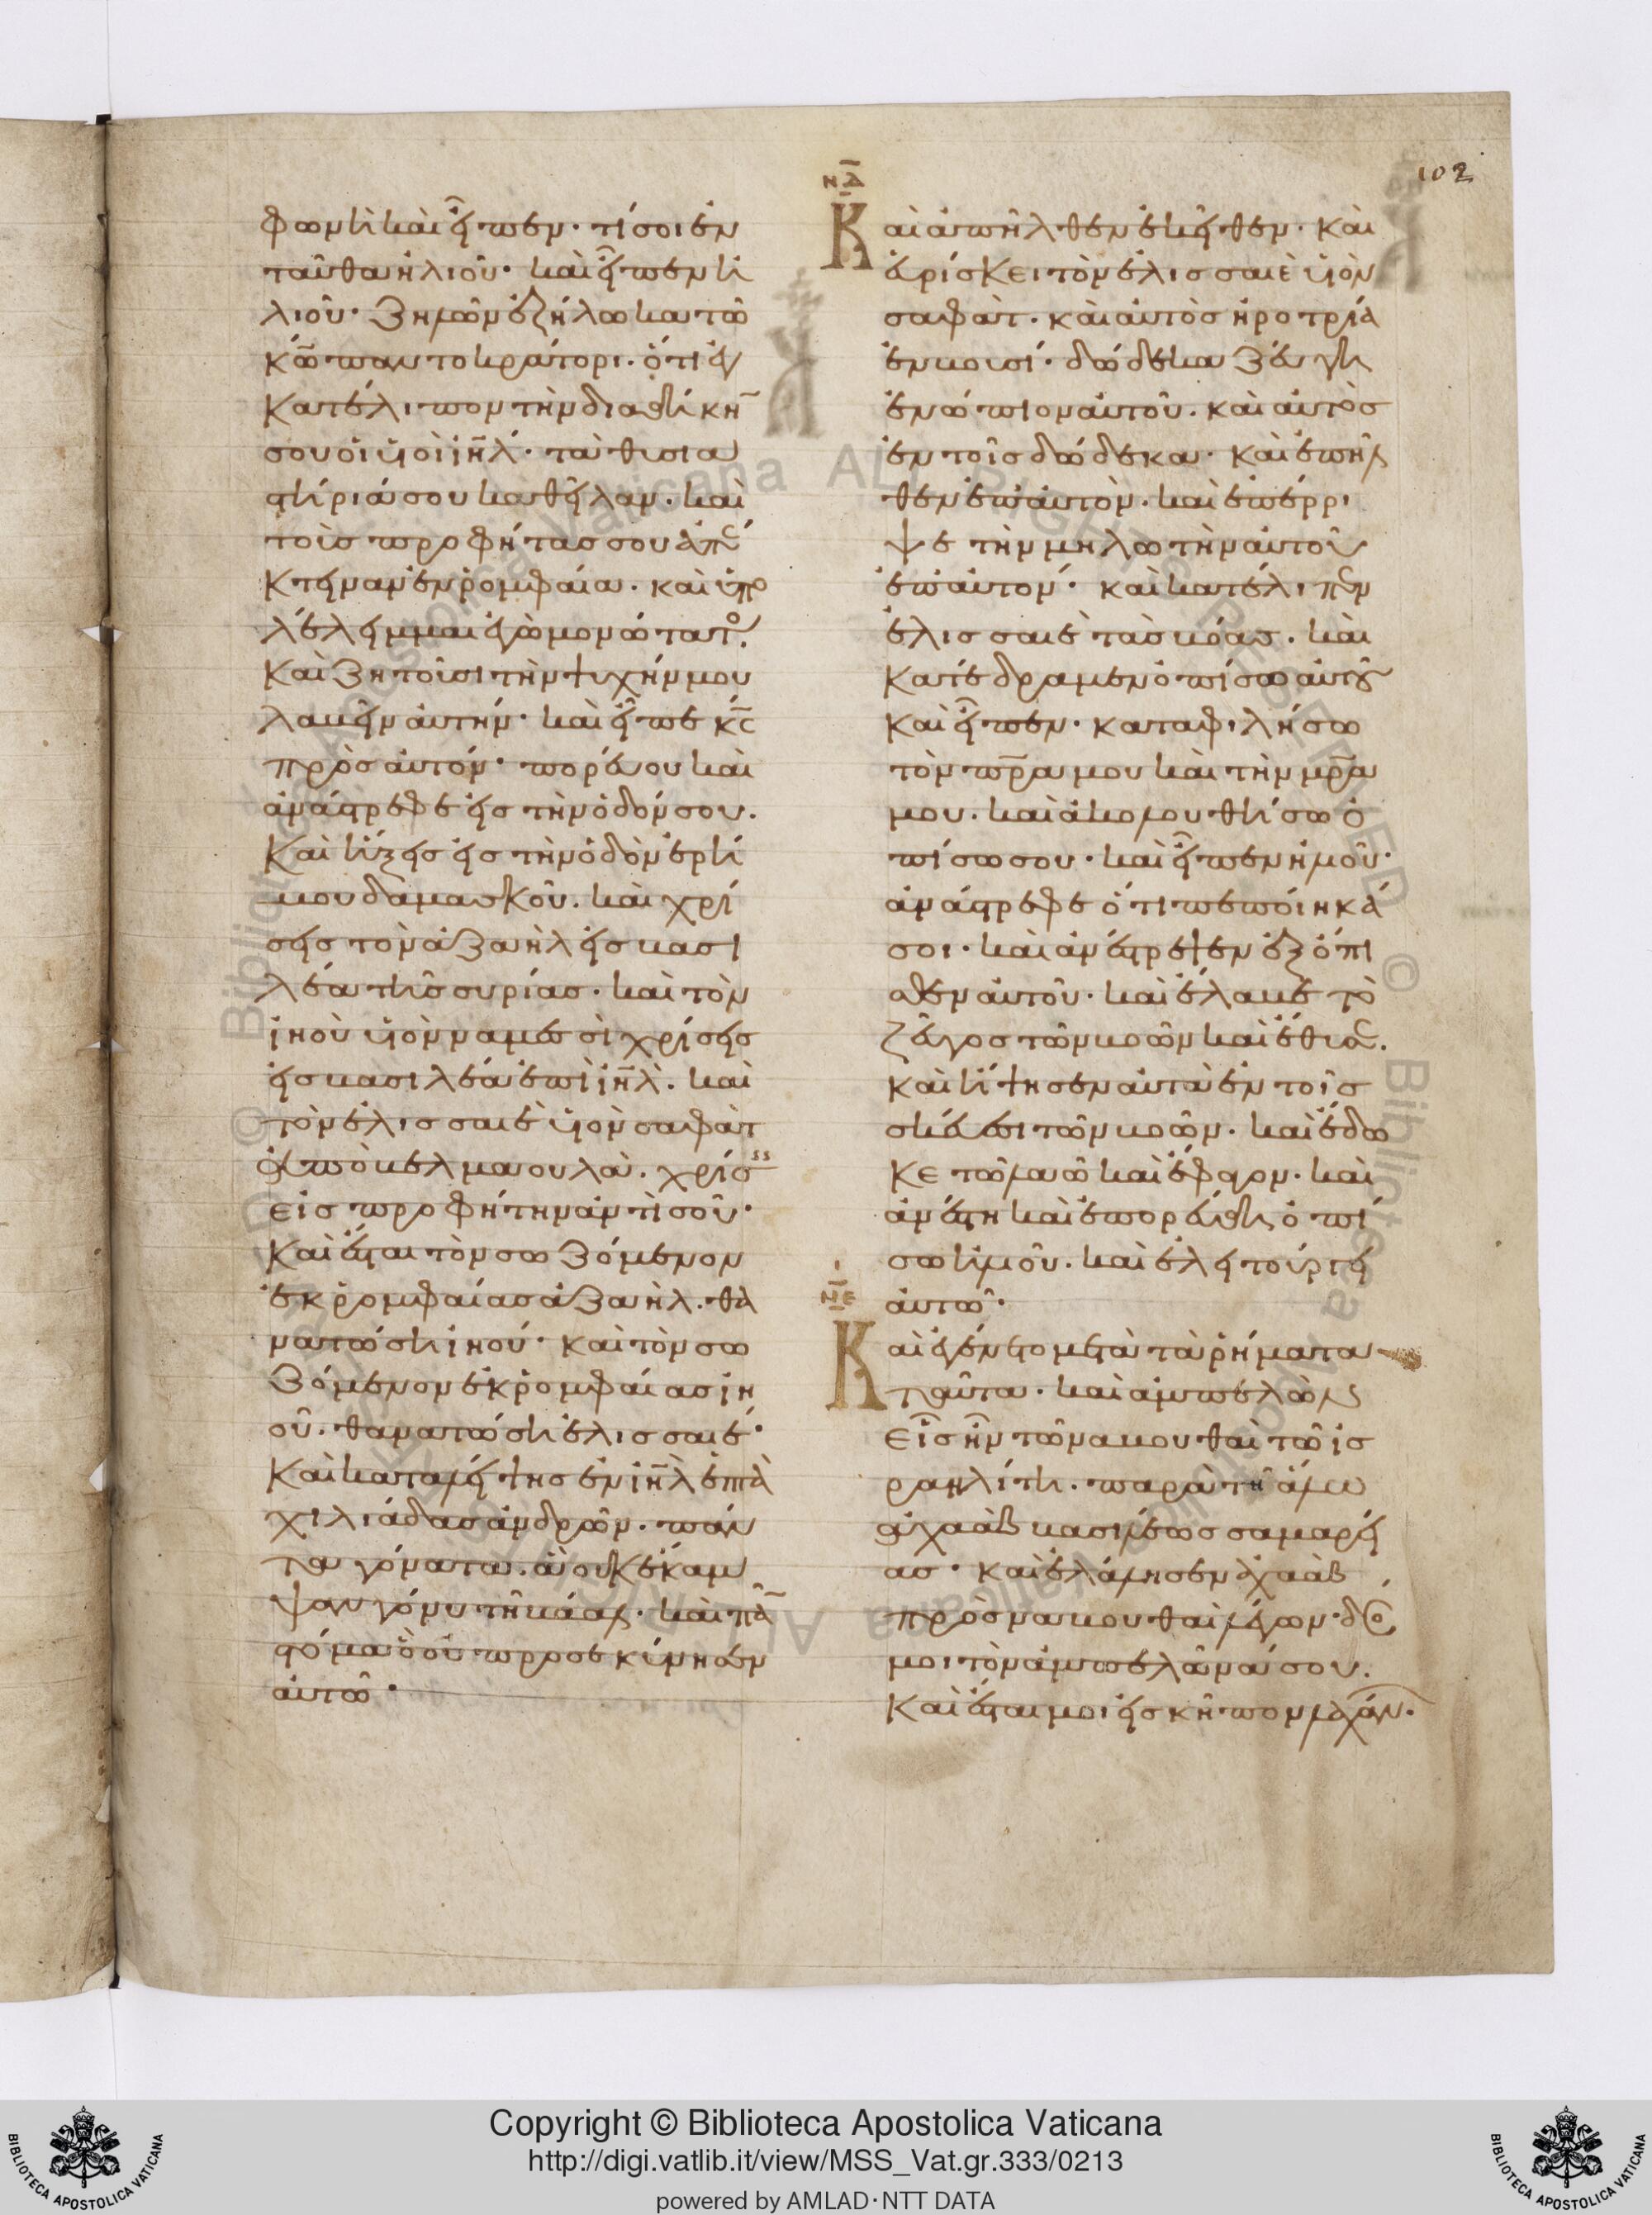 102
φωνὴ καὶ εἶπεν· τί σοι ἐν
ταῦθα ἠλιοῦ· καὶ εἶπεν ἠ
λιοῦ· ζηλῶν ἐζήλωκα τῶ
κ̅ω̅ παντοκράτορι. ὅτι ἐγ
κατέλιπον τὴν διαθήκη̅
σου οἱ υἱοὶ ι̅η̅λ̅· τὰ θυσια
στήριά σου καθεῖλαν. καὶ
τοὺς προφήτας σου ἀπέ
κτειναν ἐν ρομφαία. καὶ ὑπο
λέλειμμαι ἐγὼ μονώτατος.
καὶ ζητοῦσι τὴν ψυχήν μου
λαβεῖν αὐτήν· καὶ εἶπε κ̅ς̅
πρὸς αὐτόν· πορεύου καὶ
ἀνάστρεφε εἰς τὴν ὁδόν σου.
καὶ ἥξεις εἰς τὴν ὁδὸν ἐρή
μου δαμασκοῦ. καὶ χρί
σεις τὸν ἀζαὴλ εἰς βασι
λέα τῆς συρίας. καὶ τὸν
ἰηοὺ υἱὸν ναμεσὶ χρίσεις
εἰς βασιλέα ἐπὶ ι̅η̅λ̅. καὶ
τὸν ἐλισσαιὲ υἱὸν σαφὰτ
ἀπὸ βελμαουλὰ. χρίσεις
εἰς προφήτην ἀντὶ σοῦ·
καὶ ἔσται τὸν σωζόμενον
ἐκ ρομφαίας ἀζαὴλ. θα
νατώσει ἰηού· καὶ τὸν σω
ζόμενον ἐκ ρομφαίας ἰη
οῦ. θανατώσει ἐλισσαιέ·
καὶ καταλείψης ἐν ι̅η̅λ̅ ἑπτὰ
χιλιάδας ἀνδρῶν. πάν
τα γόνατα. ἃ οὐκ ἔκαμ
ψαν γόνυ τῆ βάαλ. καὶ πᾶ̅
στόμα ὃ οὐ προσεκύνησεν
αὐτῶ·
ν̅δ̅
Καὶ ἀπῆλθεν ἐκεῖθεν. καὶ
εὑρίσκει τὸν ἐλισσαιὲ υἱὸν
σαφὰτ. καὶ αὐτὸς ἠροτρία
ἐν βουσί· δώδεκα ζεύγη
ἐνώπιον αὐτοῦ. καὶ αὐτὸς
ἐν τοῖς δώδεκα. καὶ ἐπῆλ
θεν ἐπ' αὐτὸν. καὶ ἐπέρρι
ψε τὴν μηλωτὴν αὐτοῦ
ἐπ' αὐτον· καὶ κατέλιπεν
ἐλισσαιὲ τὰς βόας. καὶ
κατέδραμεν ὀπίσω αὐτοῦ
καὶ εἶπεν· καταφιλήσω
τὸν π̅ρ̅α̅ μου καὶ τὴν μ̅ρ̅α̅
μου. καὶ ἀκολουθήσω ὀ
πίσω σου· καὶ εἶπεν ἠλιοῦ·
ἀνάστρεφε ὅτι πεποίηκά
σοι· καὶ ἀνέστρεψεν ἐξόπι
σθεν αὐτοῦ. καὶ ἔλαβε τὸ
ζεῦγος τῶν βοῶν καὶ ἔθυσε.
καὶ ἥψησεν αὐτὰ ἐν τοῖς
σκεύεσι τῶν βοῶν. καὶ ἔδω
κε τῶ λαῶ καὶ ἔφαγον. καὶ
ἀνέστη καὶ ἐπορεύθη ὀπί
σω ἠλιοῦ. καὶ ἐλειτούργει
αὐτῶ·
ν̅ε̅
Καὶ ἐγένετο μετὰ τὰ ρήματα
ταῦτα. καὶ ἀμπελὼν
εἷς ἦν τῶ ναβουθαὶ τῶ ἰσ
ραηλίτη. παρὰ τῆ ἅλω
ἀχαὰβ βασιλέως σαμαρεί
ας. καὶ ἐλάλησεν ἀχαὰβ
πρὸς ναβουθαὶ λέγων· δός
μοι τὸν ἀμπελῶνά σου.
καὶ ἔσται μοι εἰς κῆπον λαχάνων.
Copyright © Biblioteca Apostolica Vaticana
http://digi.vatlib.it/view/MSS_Vat.gr.333/0213
powered by AMLAD·NTT DATA
BIBLIOTECA APOSTOLICA VATICANA
BIBLIOTECA APOSTOLICA VATICANA